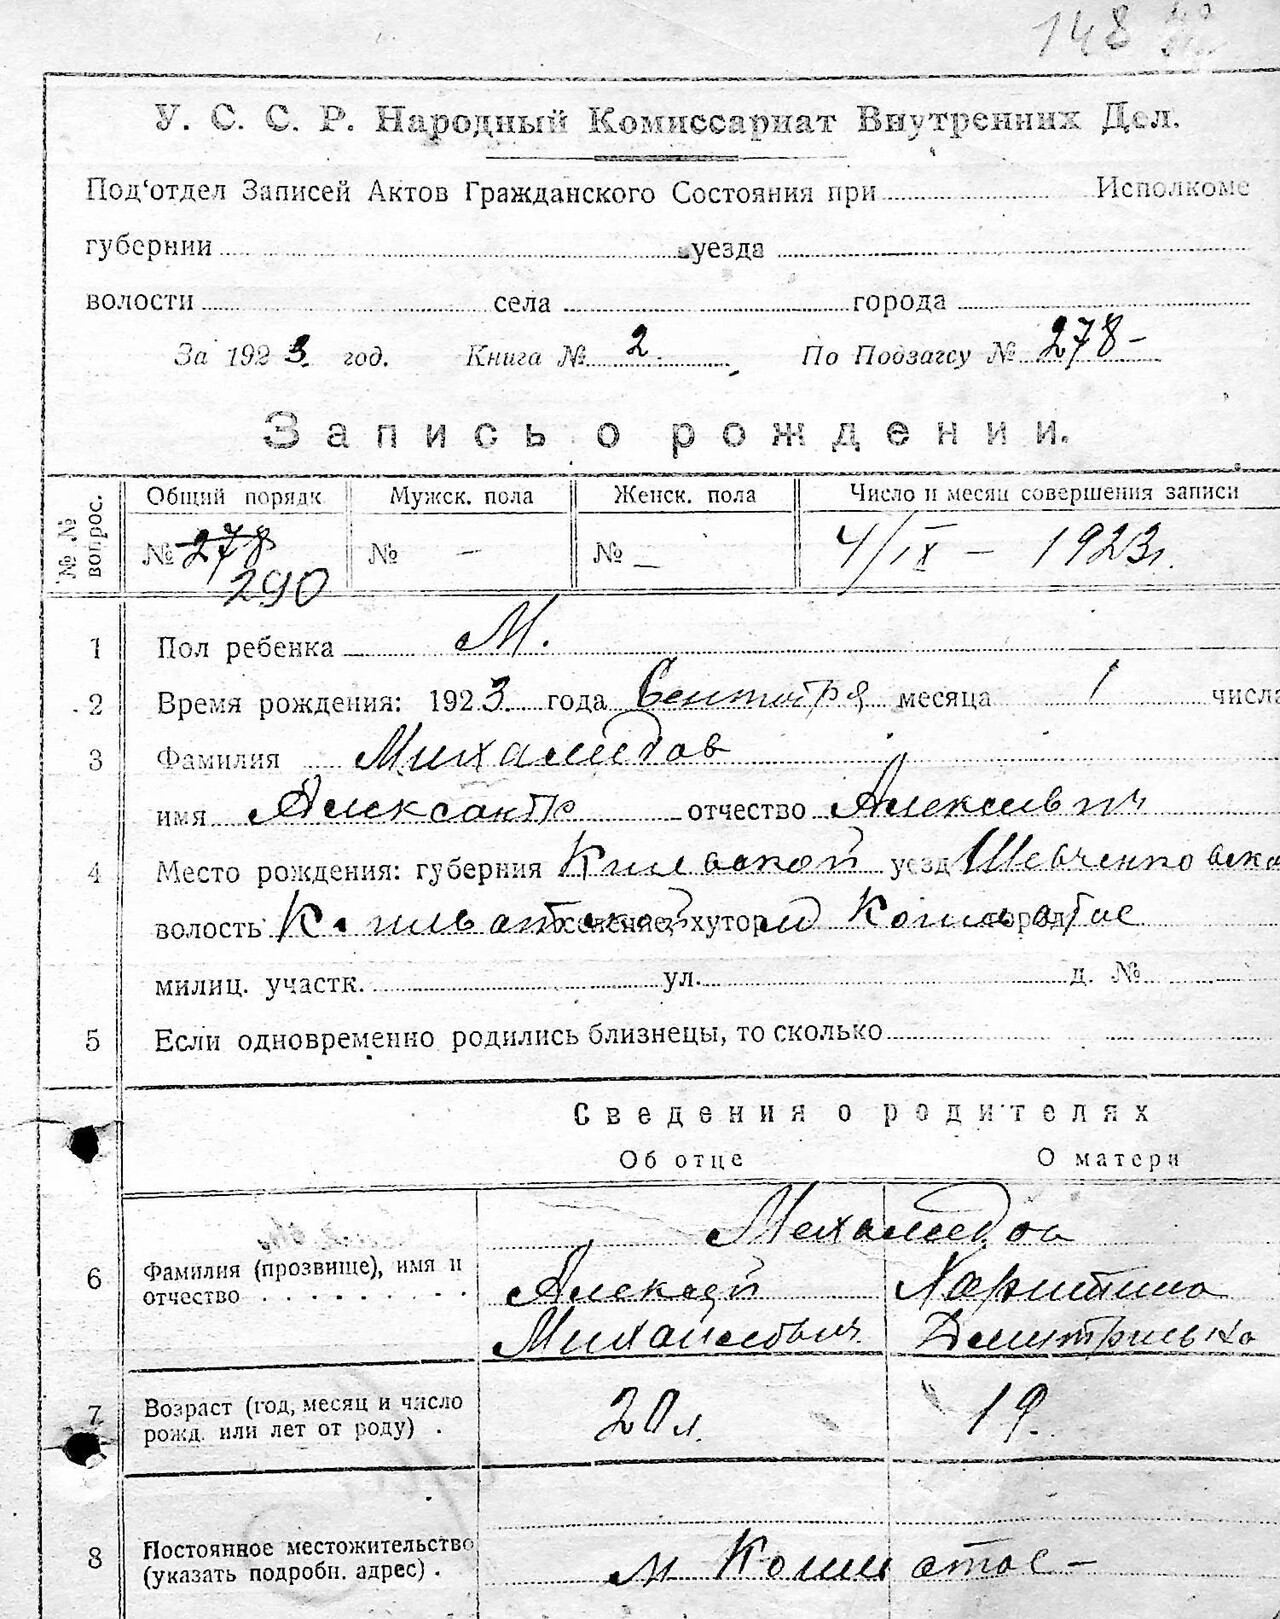 148
У. С. С. Р. Народный Комиссариат Внутренних Дел.
Под'отдел Записей Актов Гражданского Состояния при Исполкоме
губернии уезда
волости села города
За 1923 год. Книга № 2 По Подзагсу № 278-
Запись о рождении.
№№ вопрос. Общий порядк Мужск. пола Женск. пола Число и месяц совершения записи
№ 278 № - № - 4/IX - 1923 г.
290
1 Пол ребенка М.
2 Время рождения: 1923 года Сентября месяца 1 числа
3 Фамилия
имя Александр отчество Алексеевич
4 Место рождения: губерния Киевской уезд Шевченковско
волость селение, хутор город
милиц. участк. ул. д. №
5 Если одновременно родились близнецы, то сколько
Сведения о родителях
Об отце О матери
6 Фамилия (прозвище), имя и отчество
Алексей Харитина
Михайлович
7 Возраст (год, месяц и число рожд. или лет от роду) . 20 л. 19.
8 Постоянное местожительство (указать подробн. адрес) . м